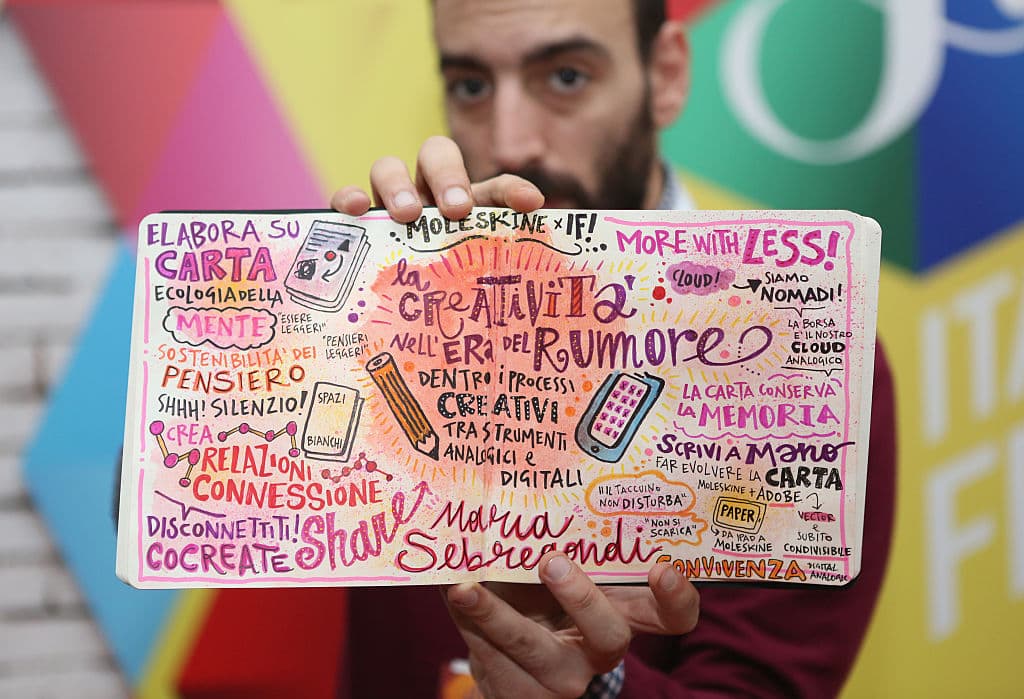 MOLESKINE x IF!
ELABORA SU
CARTA
ECOLOGIA DELLA
MENTE
"ESSERE
LEGGERI"
"PENSIERI
LEGGERI"
SOSTENIBILITA' DEI
PENSIERO
SHHH! SILENZIO!
SPAZI
BIANCHI
CREA
RELAZIONI
CONNESSIONE
DISCONNETTITI!
COCREATE
Share
la
CREATIVITA'
NELL'ERA DEL RUMORE
DENTRO i PROCESSI
CREATIVI
TRA STRUMENTI
ANALOGICI e
DIGITALI
Maria
Sebregondi
MORE WITH LESS!
CLOUD!
SIAMO
NOMADI!
LA BORSA
E' IL NOSTRO
CLOUD
ANALOGICO
LA CARTA CONSERVA
LA MEMORIA
SCRIVI A MANO
FAR EVOLVERE LA CARTA
MOLESKINE + ADOBE
"IL TACCUINO
NON DISTURBA"
"NON SI
SCARICA"
PAPER
DA IPAD A
MOLESKINE
VECTOR
e
SUBITO
CONDIVISIBILE
CONVIVENZA
DIGITAL
ANALOGIC
ITA
F